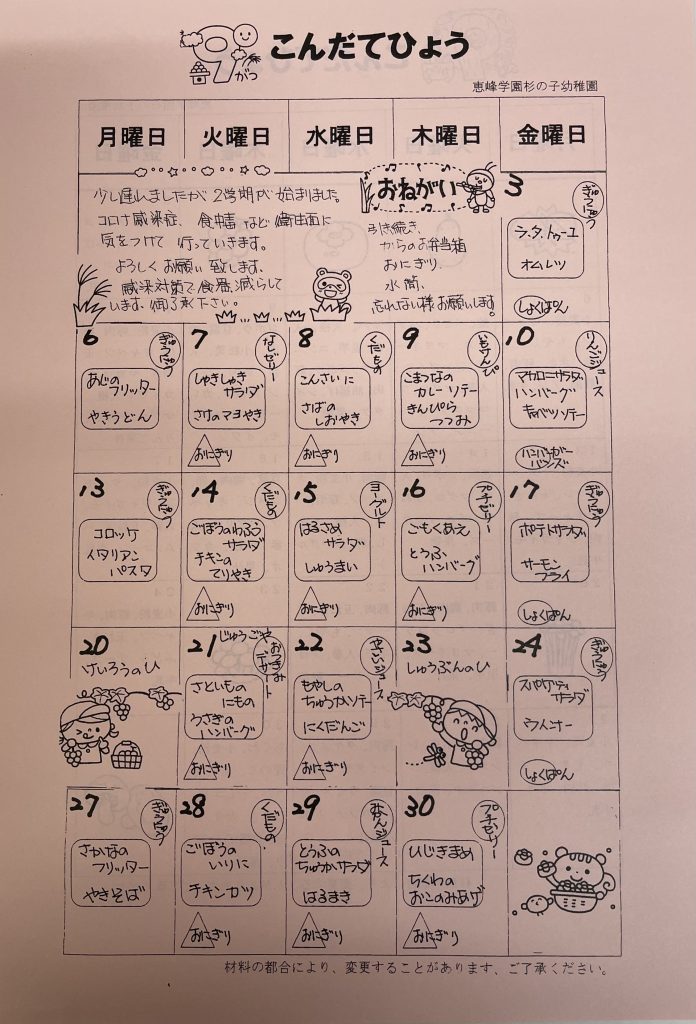 9がつ
こんだてひょう
恵峰学園杉の子幼稚園
月曜日 火曜日 水曜日 木曜日 金曜日
少し遅れましたが2学期が始まりました。
コロナ感染症、食中毒など衛生面に
気をつけて行っていきます。
よろしくお願い致します。
感染対策で食器減らして
います、御了承下さい。
おねがい
引き続き、
からのお弁当箱
おにぎり、
水筒、
忘れない様お願いします
3
ぎゅうにゅう
ラタトゥーユ
オムレツ
しょくぱん
6
ぎゅうにゅう
あじの
フリッター
やきうどん
7
なしゼリー
しゃきしゃき
サラダ
さけのマヨやき
おにぎり
8
くだもの
こんさいに
さばの
しおやき
おにぎり
9
いもけんぴ
こまつなの
カレーソテー
きんぴら
つつみ
おにぎり
10
りんごジュース
マカロニサラダ
ハンバーグ
キャベツソテー
ハンバーガー
バンズ
13
ぎゅうにゅう
コロッケ
イタリアン
パスタ
14
くだもの
ごぼうのわふう
サラダ
チキンの
てりやき
おにぎり
15
ヨーグルト
はるさめ
サラダ
しゅうまい
おにぎり
16
プチゼリー
ごもくあえ
とうふ
ハンバーグ
おにぎり
17
ぎゅうにゅう
ポテトサラダ
サーモン
フライ
しょくぱん
20
けいろうのひ
21
じゅうごや
おつきみ
デザート
さといもの
にもの
うさぎの
ハンバーグ
おにぎり
22
やさいジュース
もやしの
ちゅうかソテー
にくだんご
おにぎり
23
しゅうぶんのひ
24
ぎゅうにゅう
スパゲッティ
サラダ
ウインナー
しょくぱん
27
ぎゅうにゅう
さかなの
フリッター
やきそば
28
くだもの
ごぼうの
いりに
チキンカツ
おにぎり
29
みかんジュース
とうふの
ちゅうかサラダ
はるまき
おにぎり
30
プチゼリー
ひじきまめ
ちくわの
おこのみあげ
おにぎり
材料の都合により、変更することがあります、ご了承ください。